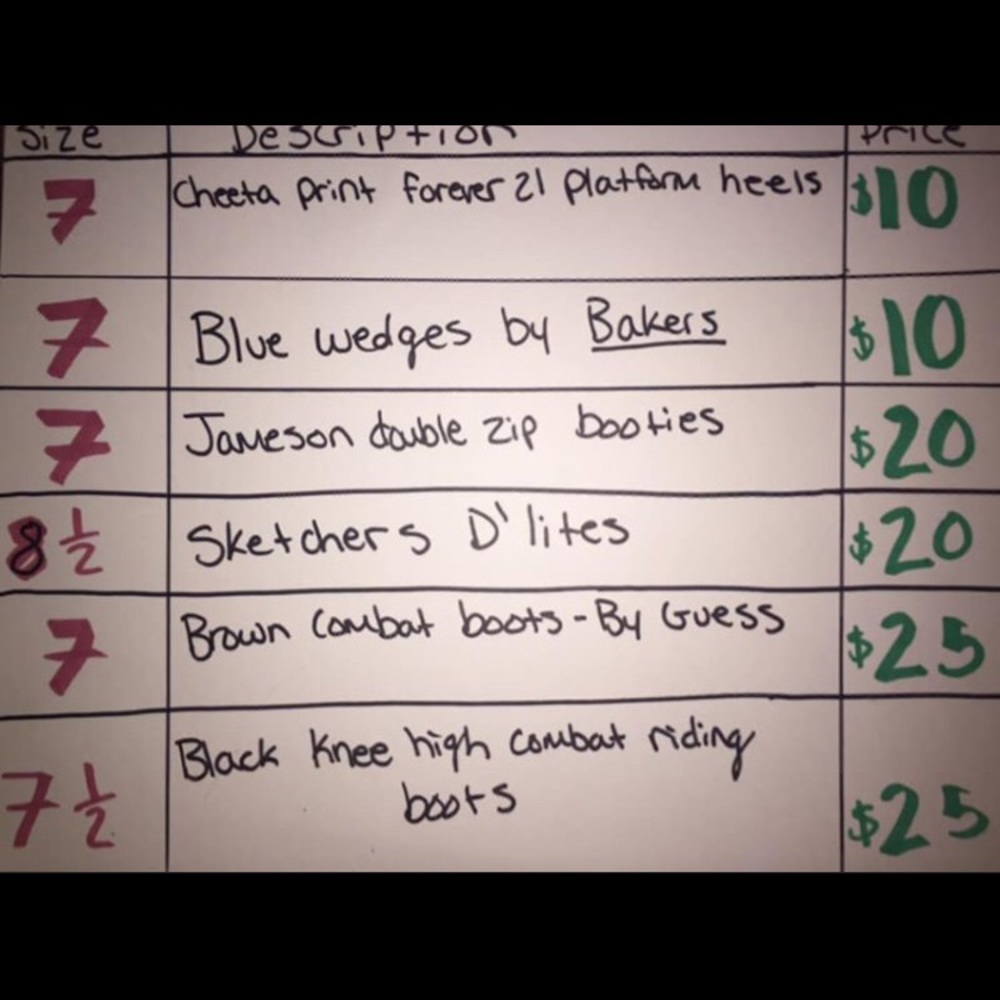 Size Description Price
7 Cheeta print forever 21 platform heels $10
7 Blue wedges by Bakers $10
7 Jameson double zip booties $20
8 1/2 Sketchers D'lites $20
7 Brown combat boots - By Guess $25
7 1/2 Black Knee high combat riding
boots $25